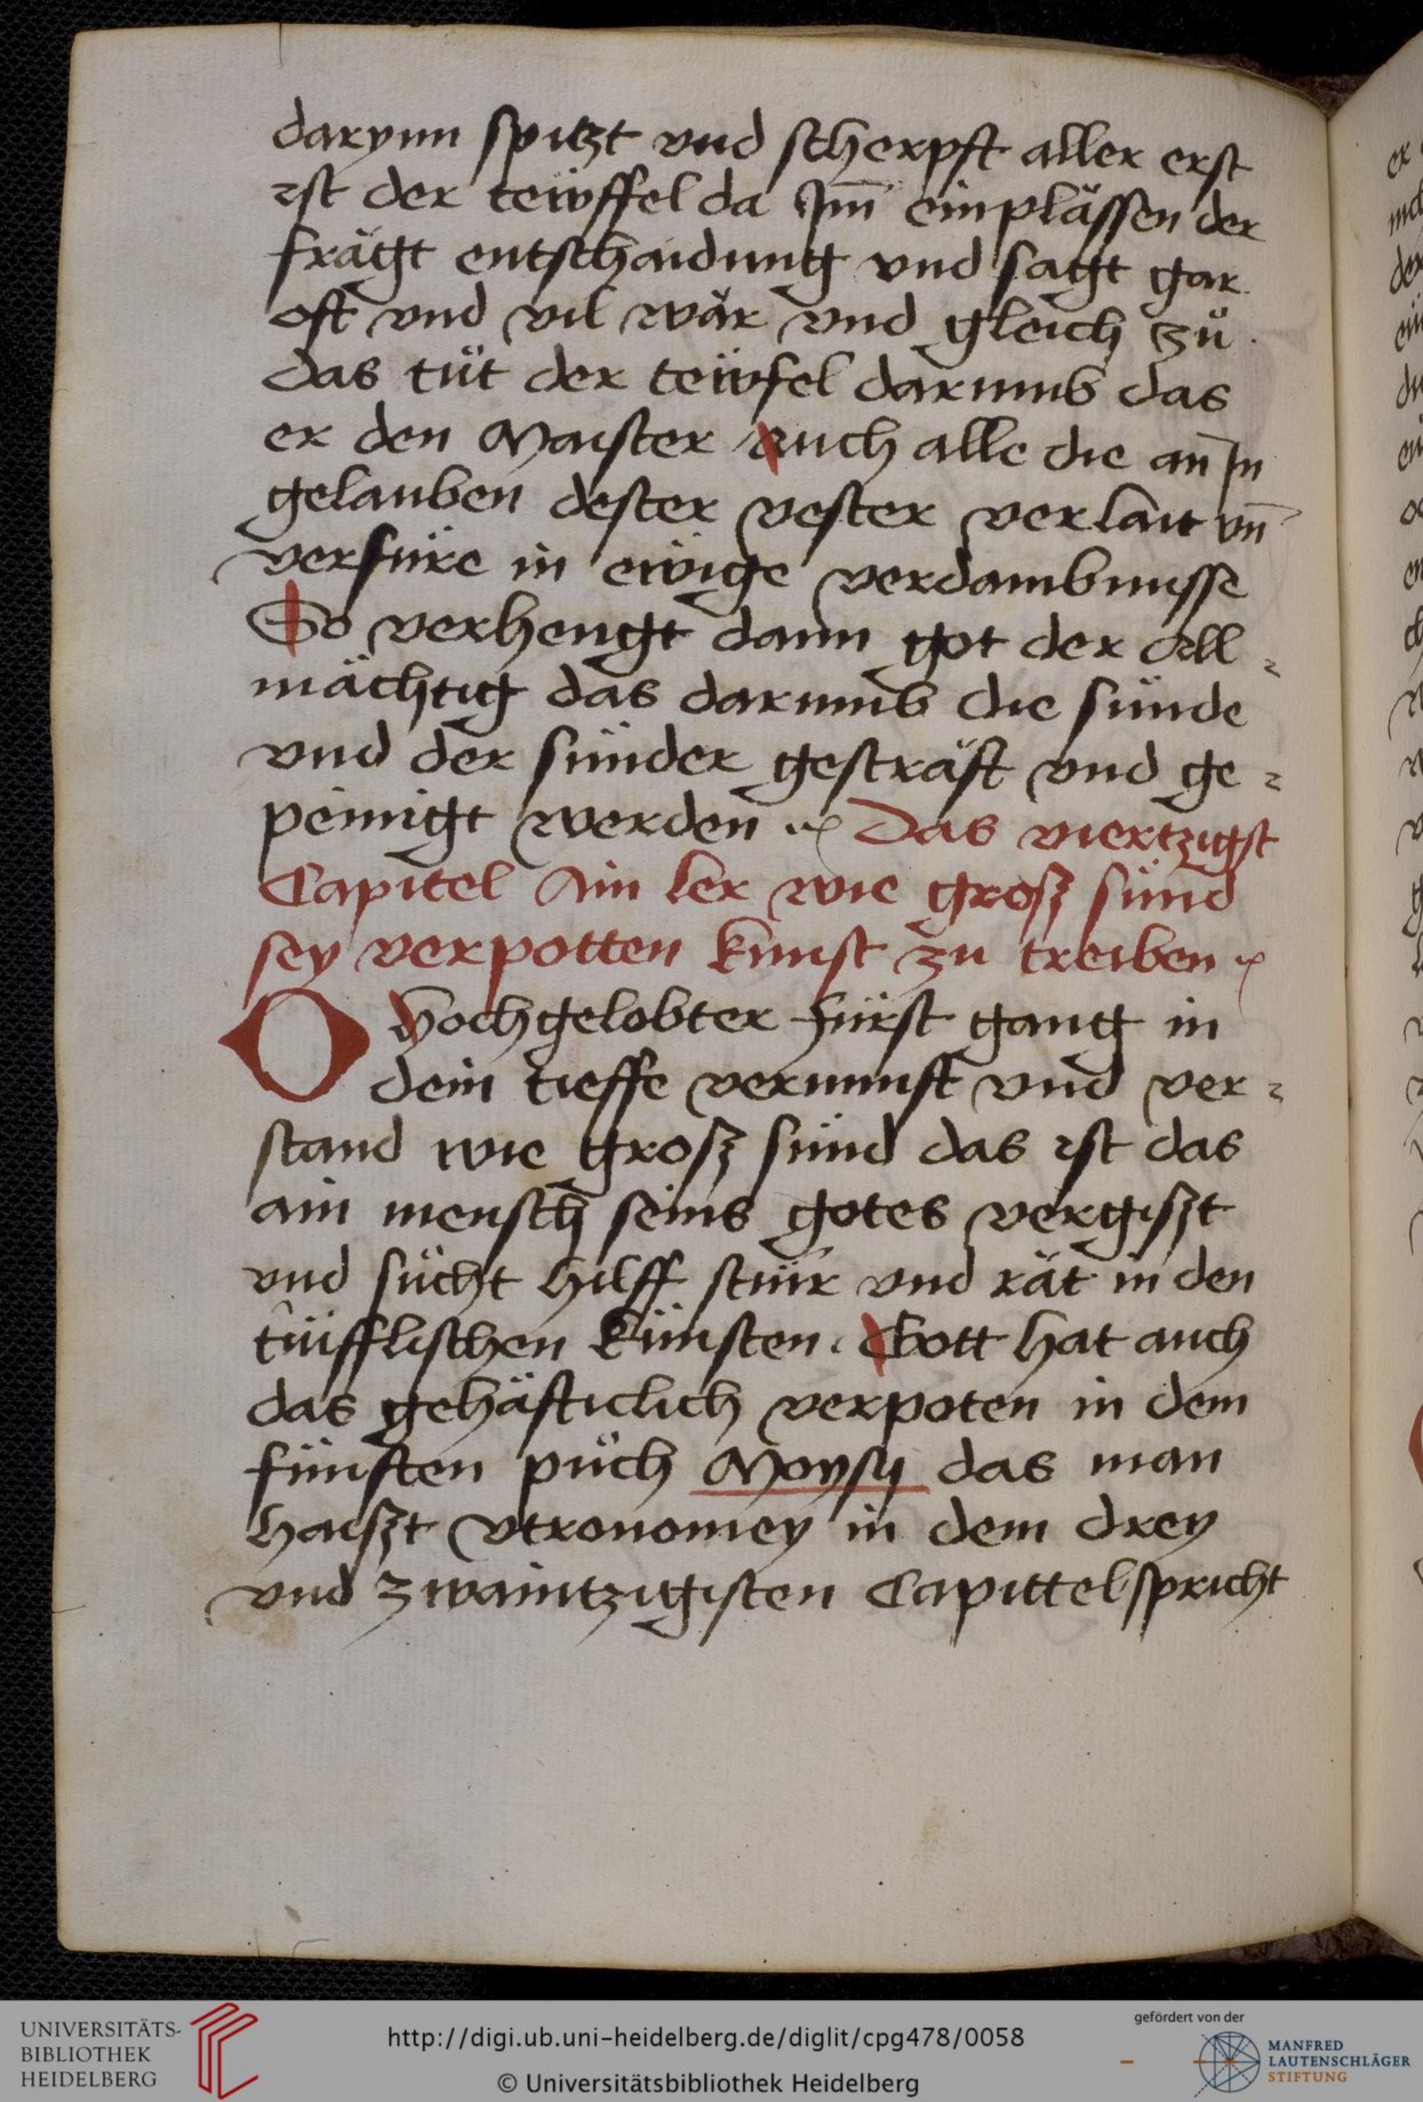 darynn spitzt vnd scherpft aller erst
ist der tewffel da Jm̄ einplässen der
frägt entschaidung vnd sagt gar
oft vnd vil wär vnd gleich zů
das tůt der tewfel darumb das
er den Maister auch alle die an̄ Jn
gelauben dester vester verlait vn̄
verfüre in ewige verdambnusse
So verhengt dann got der All
mächtig das darumb die sünde
vnd der sünder gesträft vnd ge
peinigt werden Das viertzigst
Capitel Ain ler wie grosz sünd
sey verpotten kunst zu treiben
O hochgelobter fürst gang in
dein tieffe vernunft vnd ver
stand wie grosz sünd das ist das
ain mensch seins gotes vergiszt
vnd sůcht hilff stüir vnd rät in den
tüifflischen künsten. Gott hat auch
das gehäfticlich verpoten in dem
fünften půch Moysy das man
haiszt vtronomey in dem drey
vnd zwaintzigisten Capittel spricht
UNIVERSITÄTS-
BIBLIOTHEK
HEIDELBERG
http://digi.ub.uni-heidelberg.de/diglit/cpg478/0058
© Universitätsbibliothek Heidelberg
gefördert von der
MANFRED
LAUTENSCHLÄGER
STIFTUNG